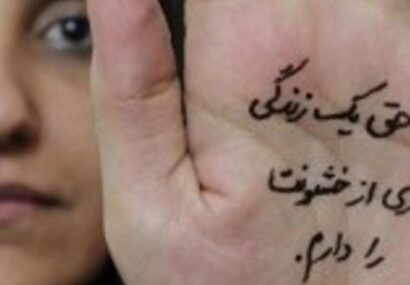 حق یک زندگی
ری از خشونت
را دارم.